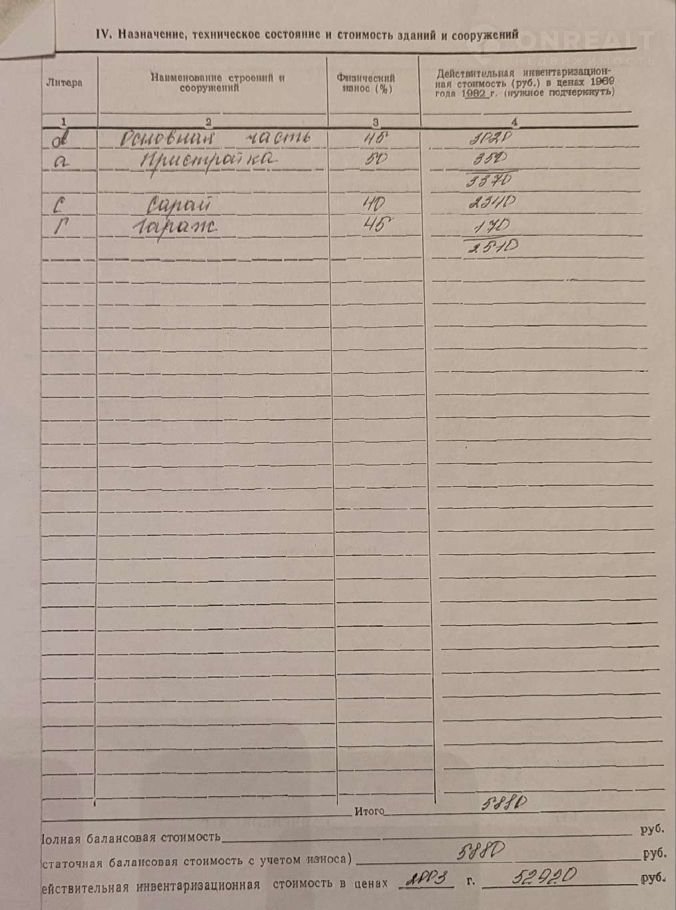 ONREALT
НЕДВИЖИМОСТЬ
IV. Назначение, техническое состояние и стоимость зданий и сооружений
Литера Наименование строений и сооружений Физический износ (%) Действительная инвентаризацион-
ная стоимость (руб.) в ценах 1969
года 1982 г. (нужное подчеркнуть)
1 2 3 4
d Основная часть 45 3020
а Пристройка 50 350
3370
С Сарай 40 2340
Г Гараж 45 170
2510
Итого 5880
олная балансовая стоимость руб.
статочная балансовая стоимость с учетом износа) 5880 руб.
ействительная инвентаризационная стоимость в ценах 2003 г. 52920 руб.